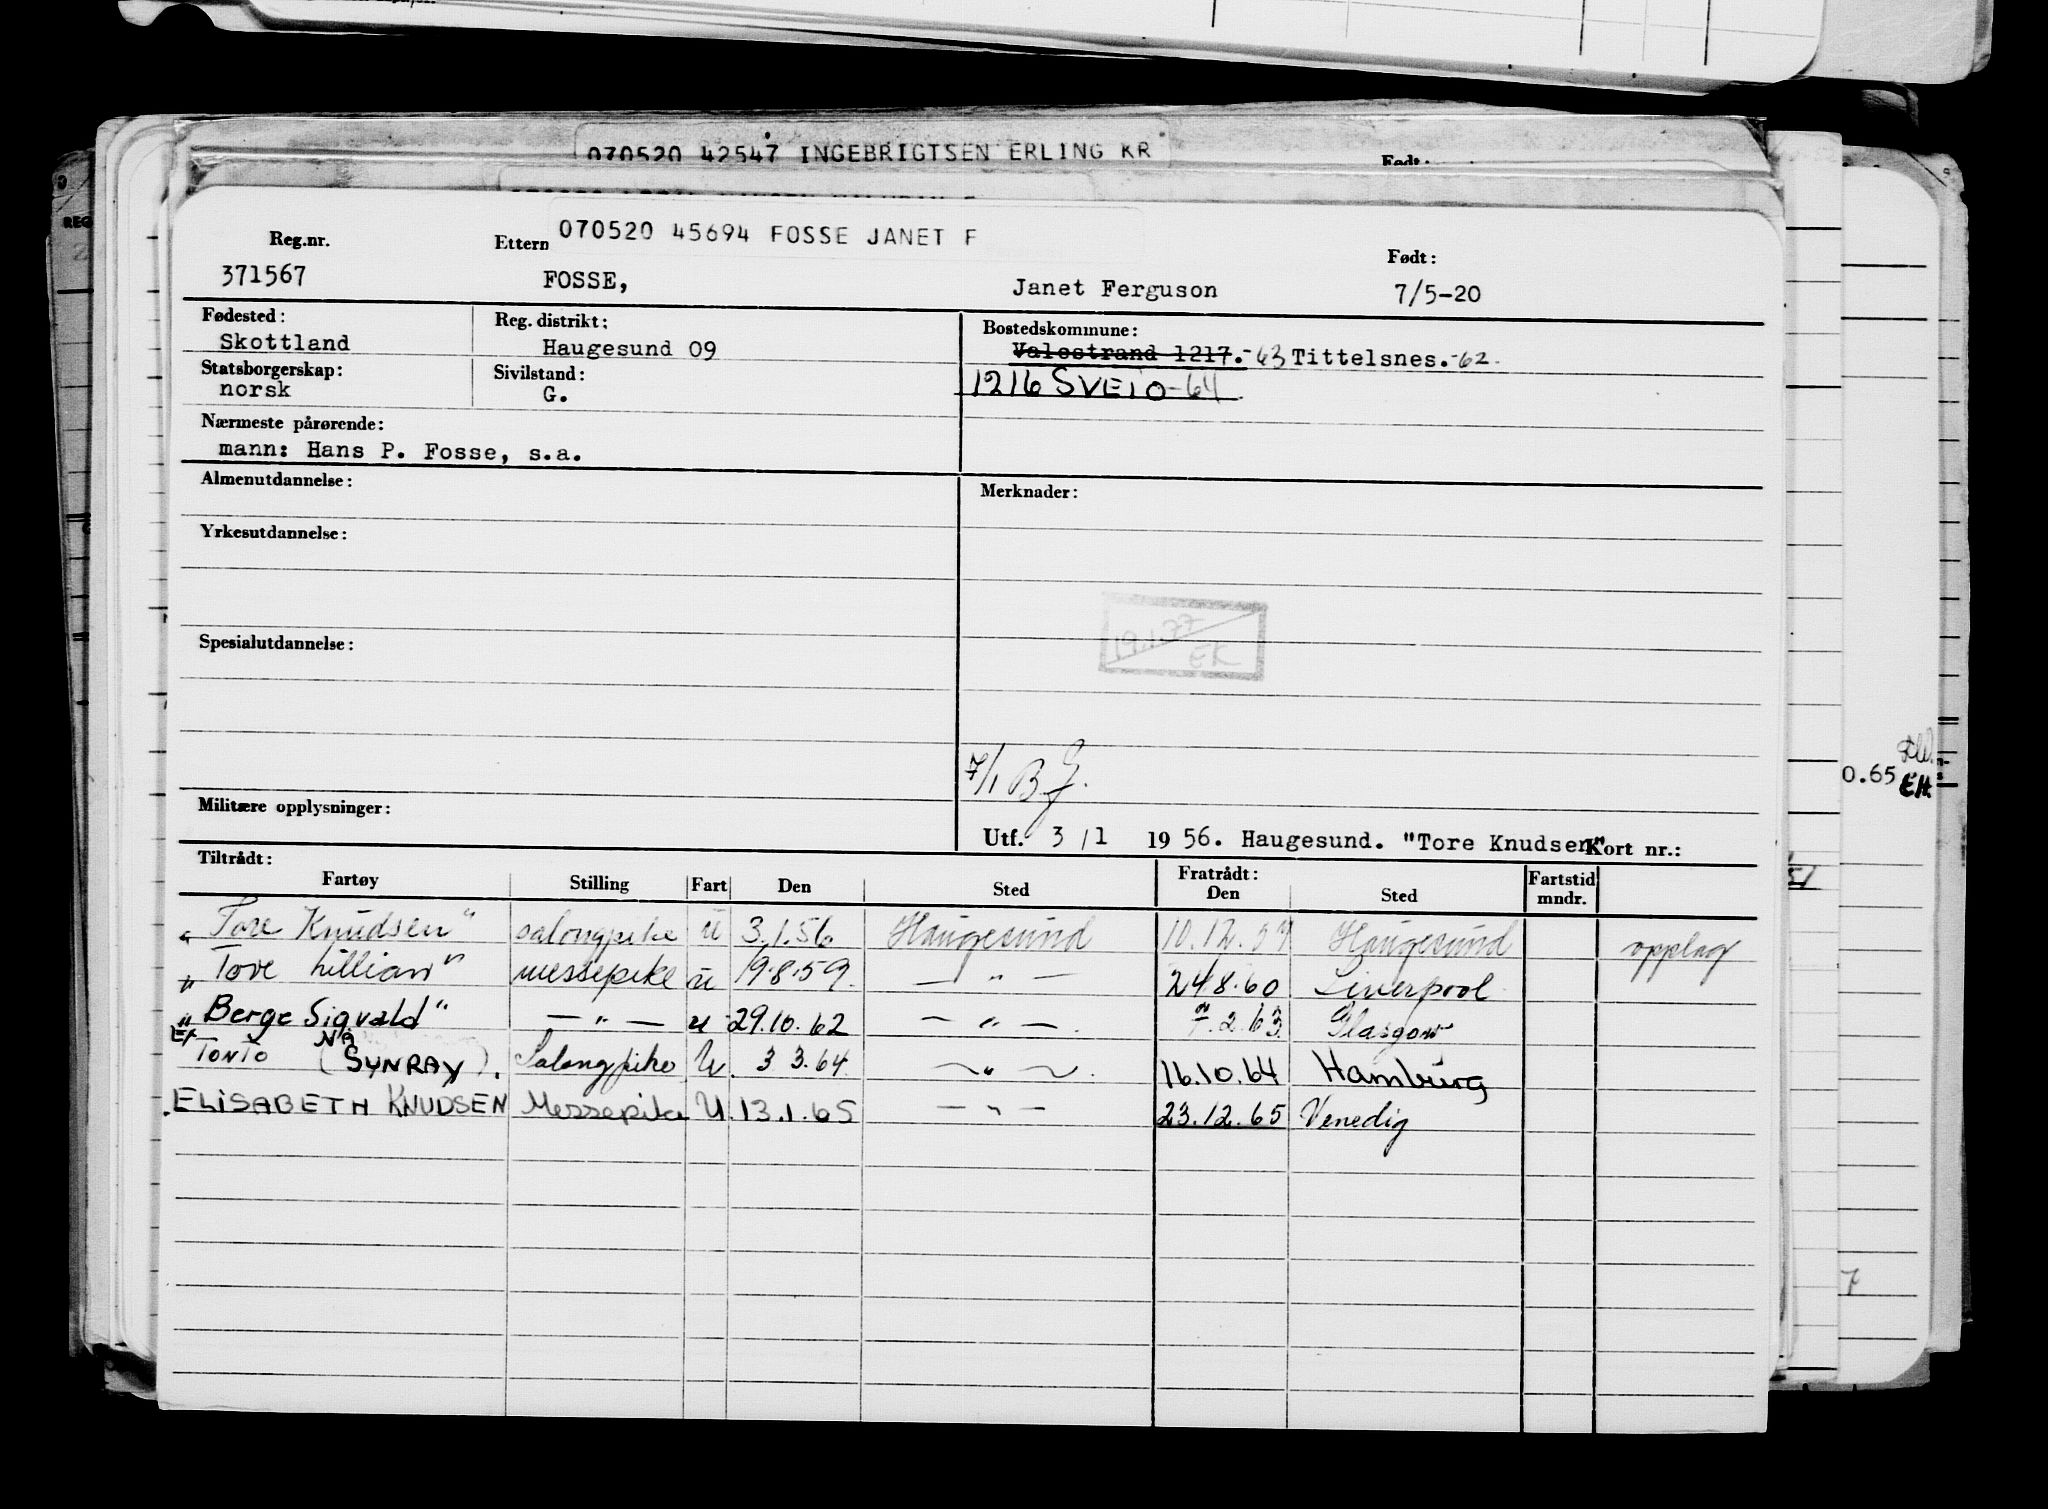 070520 42547 INGEBRIGTSEN ERLING KR
Født:
070520 45694 FOSSE JANET F
Reg.nr. Ettern Født:
371567 FOSSE, Janet Ferguson 7/5-20
Fødested: Reg. distrikt: Bostedskommune:
Skottland Haugesund 09 Valestrand 1217.-63 Tittelsnes.-62.
Statsborgerskap: Sivilstand: 1216 SVEIO-64
norsk G.
Nærmeste pårørende:
mann: Hans P. Fosse, s.a.
Almenutdannelse: Merknader:
Yrkesutdannelse:
19.1.77
EK
Spesialutdannelse:
7/1 B
Militære opplysninger:
Utf. 3/1 1956. Haugesund. "Tore Knudsen" Kort nr.:
Tiltrådt: Fratrådt:
Fartøy Stilling Fart Den Sted Den Sted Fartstid mndr.
"Tore Knudsen" salongpike u 3.1.56 Haugesund 10.12.57 Haugesund opplag
"Tove Lillian" messepike u 19.8.59. — " — 24.8.60 Liverpool
"Berge Sigvald" — " — u 29.10.62 — " — . 7.2.63 Glasgow
Ex TONTO (NÅ SYNRAY). Salongpike U. 3 3.64. — " — . 16.10.64 Hamburg
ELISABETH KNUDSEN Messepike U. 13.1.65 — " — 23.12.65 Venedig
0.65
EH.
51
7
REG